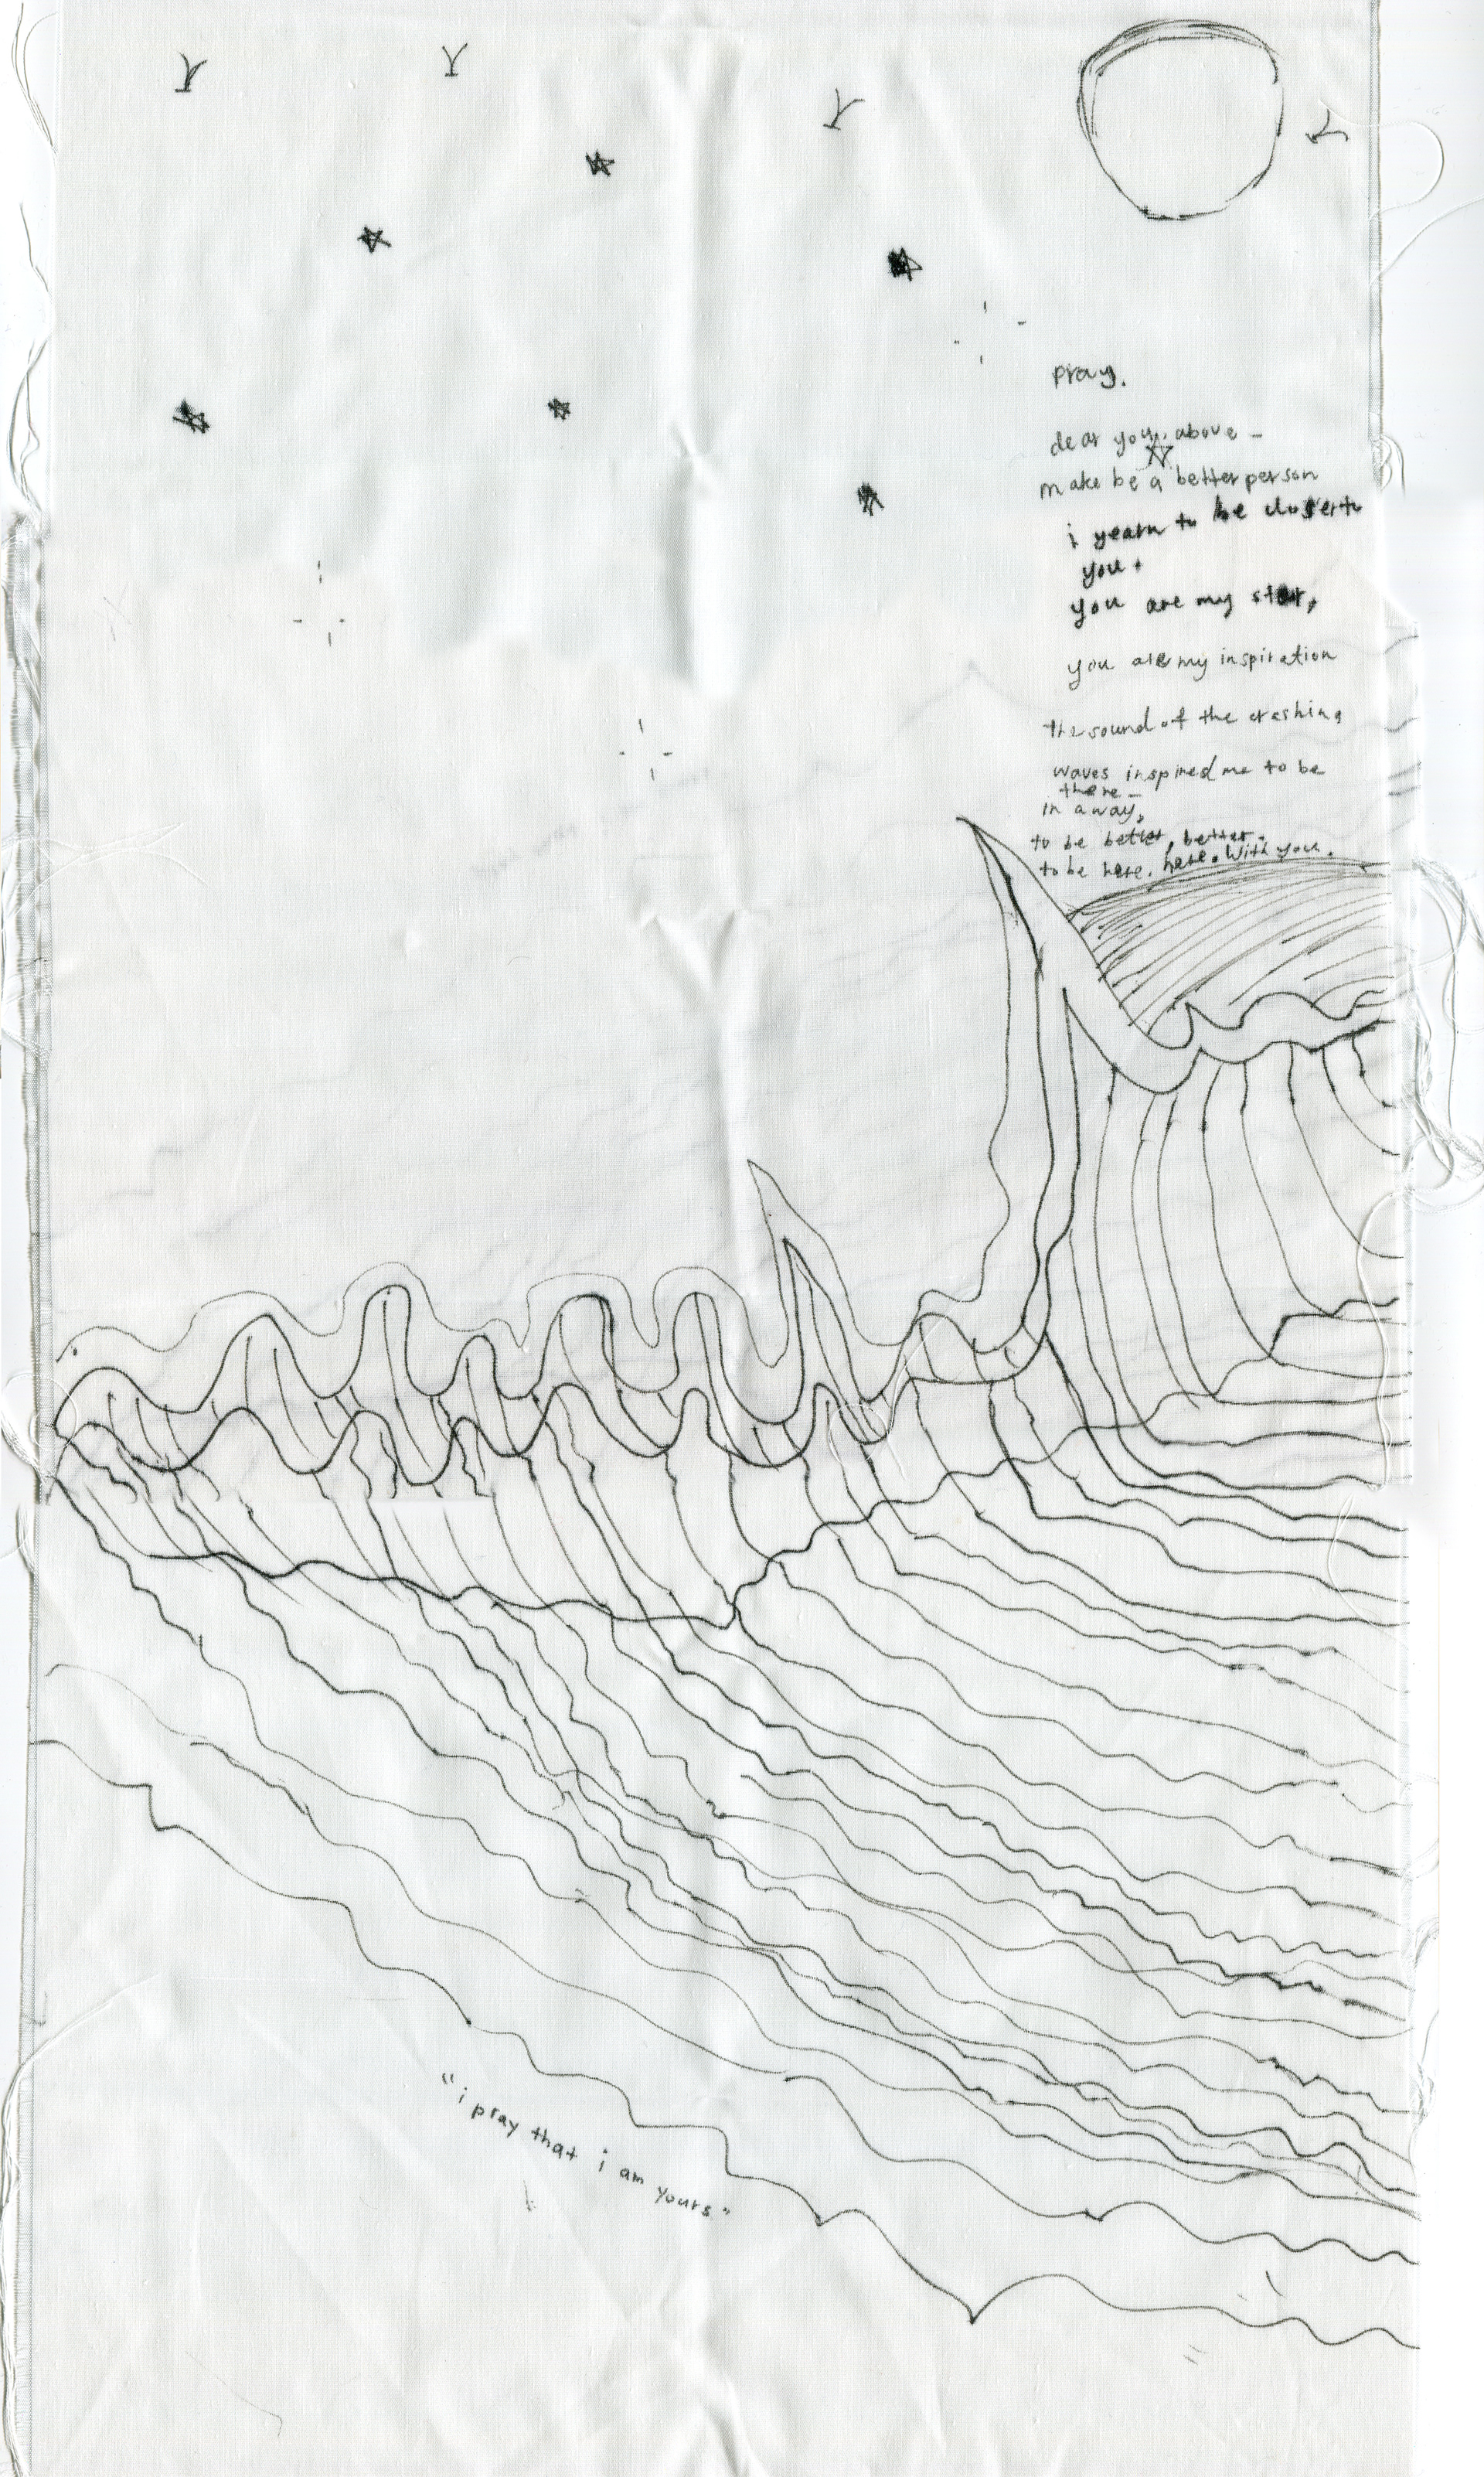 pray.
dear you, above -
make be a better person
i yearn to be closer to
you.
you are my star,
you are my inspiration
the sound of the crashing
waves inspired me to be
there -
in a way,
to be better, better.
to be here. here. with you.
"i pray that i am yours"